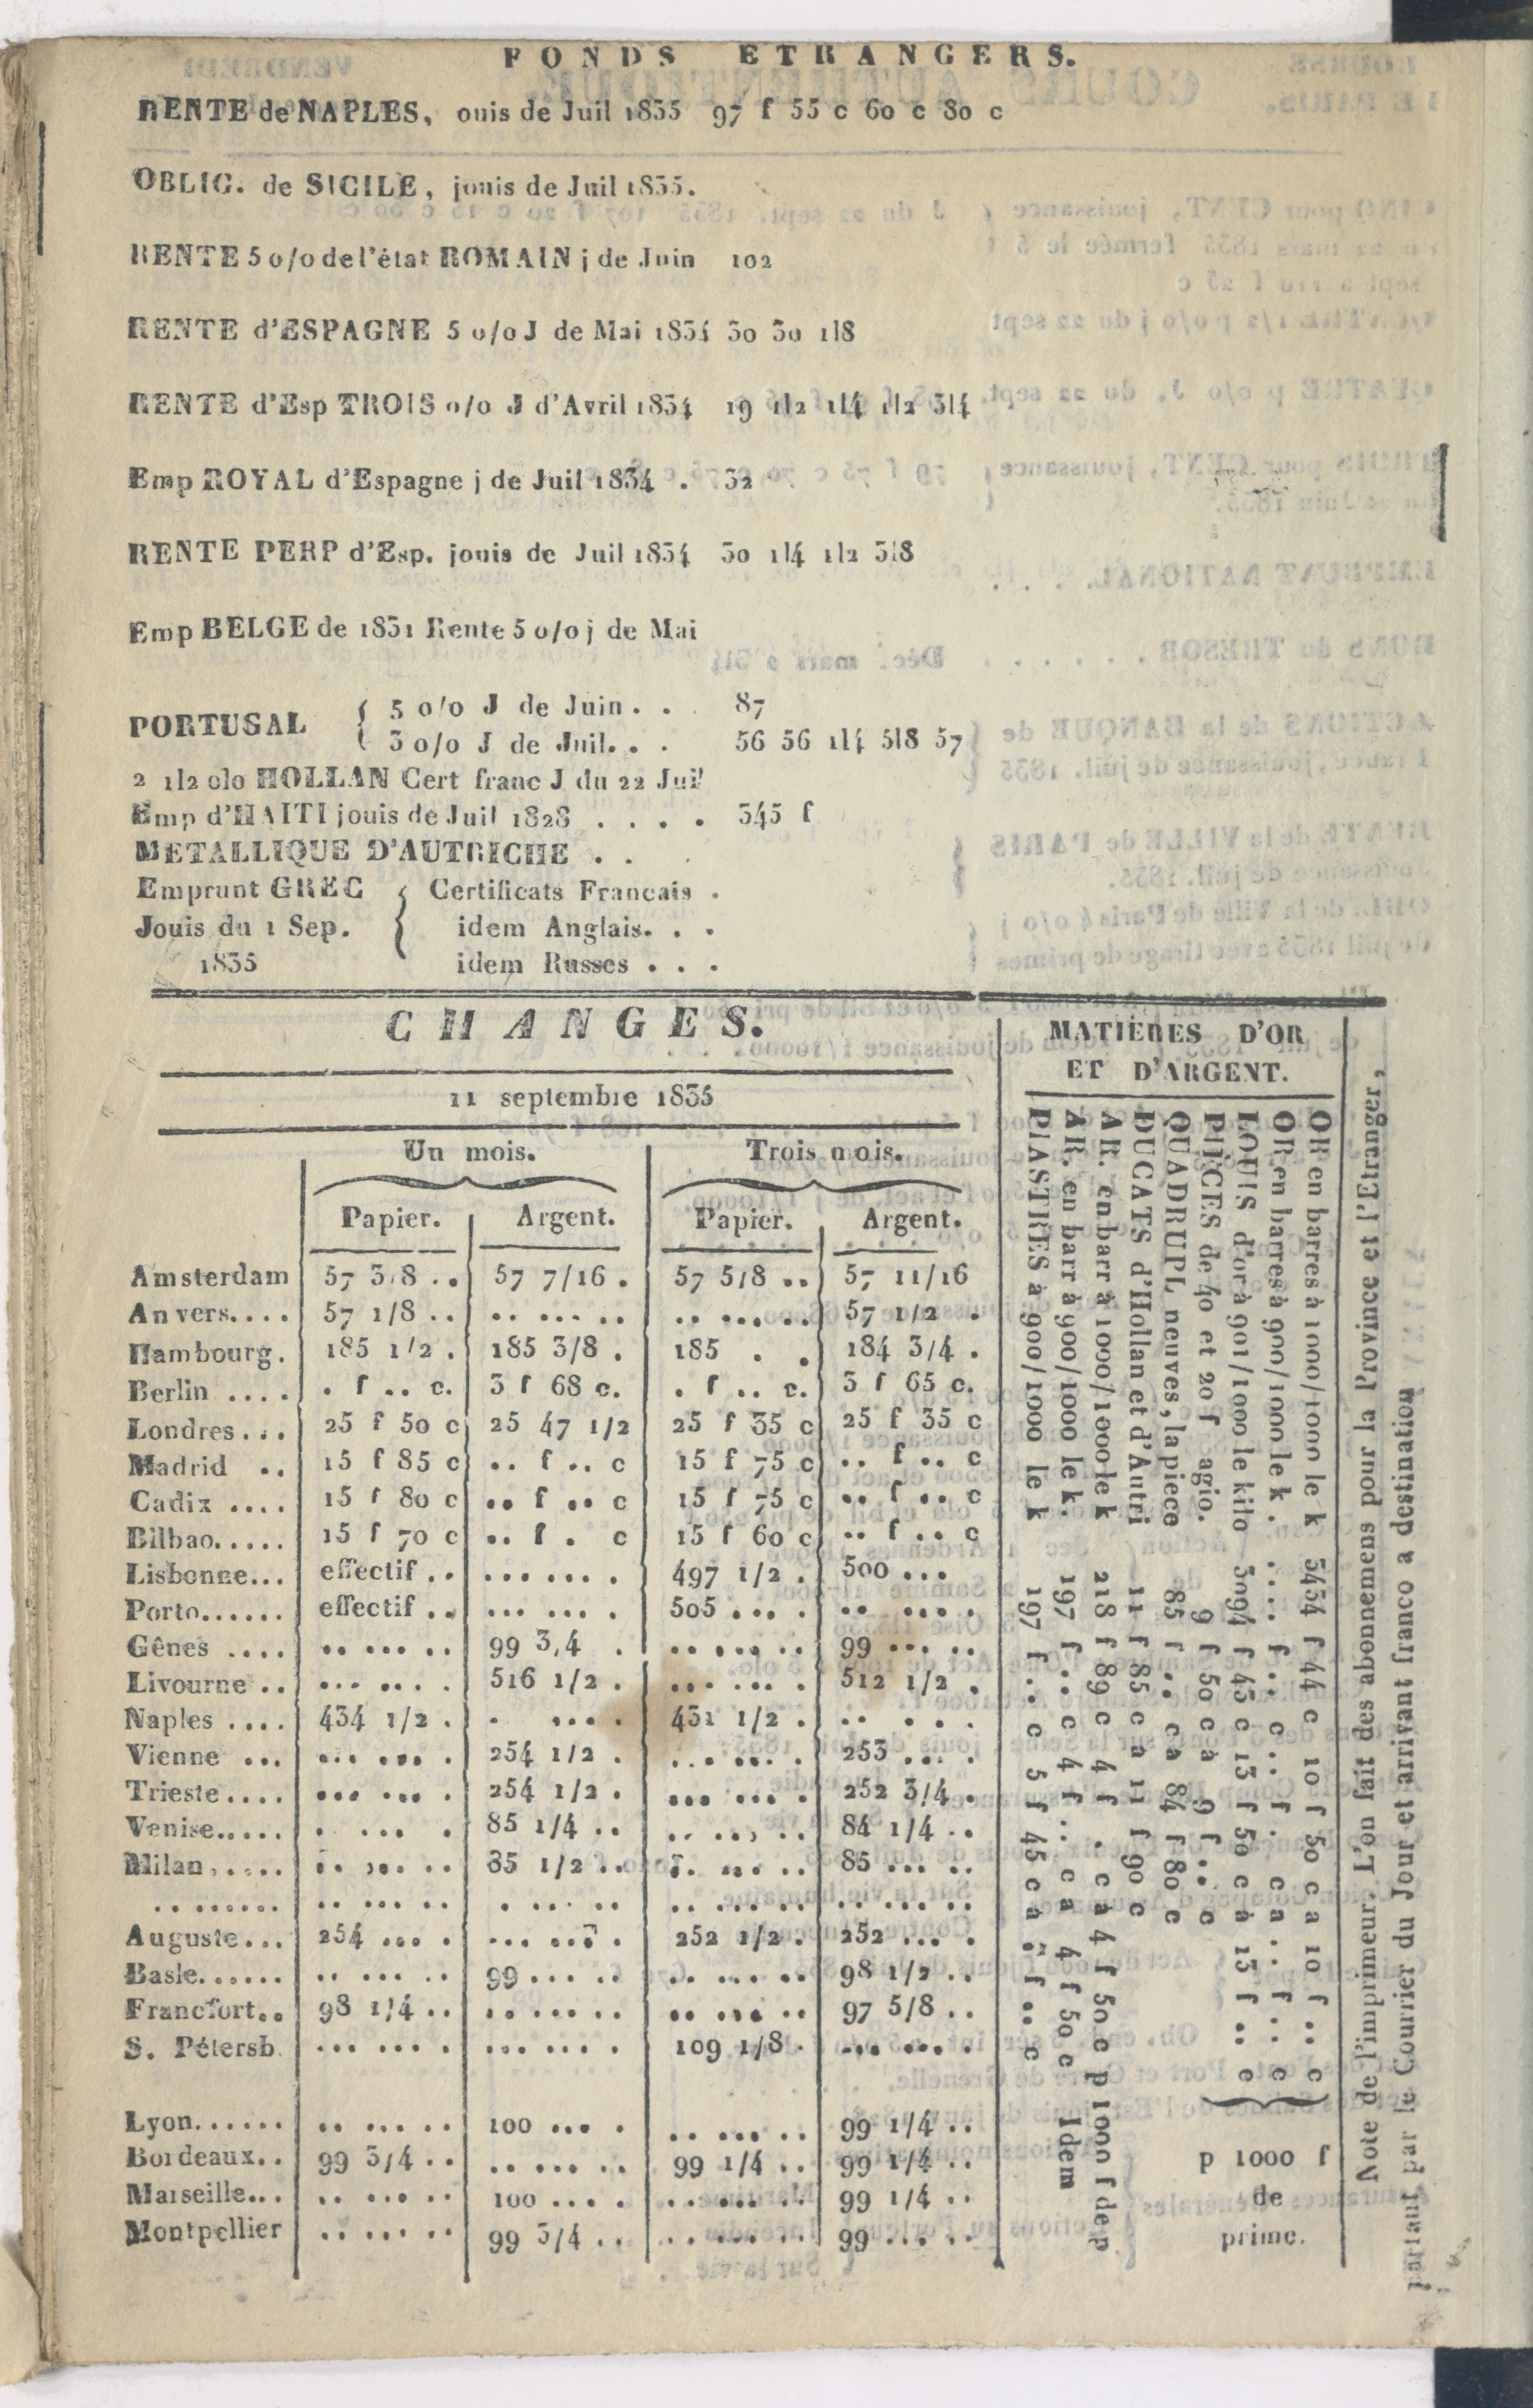 FONDS ETRANGERS.
RENTE de NAPLES, ouis de Juil 1835 97 f 55 c 60 c 80 c
OBLIG. de SICILE, jouis de Juil 1835.
RENTE 5 o/o de l'état ROMAIN j de Juin 102
RENTE d'ESPAGNE 5 o/o J de Mai 1834 30 30 1|8
RENTE d'Esp TROIS o/o J d'Avril 1834 19 1|2 1|4 1|2 3|4
Emp ROYAL d'Espagne j de Juil 1834 . 32
RENTE PERP d'Esp. jouis de Juil 1834 30 1|4 1|2 3|8
Emp BELGE de 1831 Rente 5 o/o j de Mai
PORTUSAL { 5 o/o J de Juin . . 87
3 o/o J de Juil. . . 56 56 1|4 5|8 57
2 1|2 olo HOLLAN Cert franc J du 22 Juil
Emp d'HAITI jouis de Juil 1828 . . . . 345 f
METALLIQUE D'AUTRICHE . .
Emprunt GREC { Certificats Francais .
Jouis du 1 Sep. idem Anglais. . .
1835 idem Russes . . .
CHANGES.
11 septembre 1835
Un mois. Trois mois.
Papier. Argent. Papier. Argent.
Amsterdam 57 3/8 .. 57 7/16 . 57 5/8 .. 57 11/16
Anvers.... 57 1/8 .. .. ... .. .. ... .. 57 1/2 .
Hambourg. 185 1/2 . 185 3/8 . 185 . . 184 3/4 .
Berlin .... . f .. c. 3 f 68 c. . f .. c. 3 f 65 c.
Londres... 25 f 50 c 25 47 1/2 25 f 35 c 25 f 35 c
Madrid .. 15 f 85 c .. f .. c 15 f 75 c .. f .. c
Cadix .... 15 f 80 c .. f .. c 15 f 75 c .. f .. c
Bilbao..... 15 f 70 c .. f . c 15 f 60 c .. f .. c
Lisbonne... effectif .. ... ... . 497 1/2 . 500 ...
Porto...... effectif .. ... ... . 505 ... . .. ... .
Gênes .... .. ... .. 99 3,4 . .. ... .. 99 ... ..
Livourne .. ... ... . 516 1/2 . ... ... . 512 1/2 .
Naples .... 434 1/2 . . ... . 431 1/2 . .. . . .
Vienne ... ... ... . 254 1/2 . ... ... . 253 ... .
Trieste .... ... ... . 254 1/2 . ... ... . 252 3/4 .
Venise..... . ... . 85 1/4 .. .. ... .. 84 1/4 ..
Milan ..... .. ... .. 85 1/2 .. .. ... .. 85 ... ..
.. ....... .. ... .. . ... .. .. ... .. .. ... ..
Auguste... 254 ... . ... ... . 252 1/2 . 252 ... .
Basle...... .. ... .. 99 ... .. .. ... .. 98 1/2 ..
Francfort.. 98 1/4 .. .. ... .. .. ... .. 97 5/8 ..
S. Pétersb. ... ... . ... ... . 109 1/8 . ... ... .
Lyon...... .. ... .. 100 ... . .. ... .. 99 1/4 ..
Bordeaux.. 99 3/4 .. .. ... .. 99 1/4 .. 99 1/4 ..
Marseille... .. ... .. 100 ... . .. ... .. 99 1/4 ..
Montpellier .. ... .. 99 3/4 .. .. ... .. 99 ... ..
MATIÈRES D'OR
ET D'ARGENT.
OR en barres à 1000/1000 le k 3434 f 44 c 10 f 50 c a 10 f .. c
OR en barres à 900/1000 le k . .... f .. c .. f . c a .. f .. c
LOUIS d'or à 901/1000 le kilo 3094 f 43 c 13 f 50 c à 13 f .. c
PIÈCES de 40 et 20 f agio. 9 f 50 c à 9 f .. c
QUADRUPL neuves, la piece 85 f .. c a 84 f 80 c
DUCATS d'Hollan et d'Autri 11 f 85 c a 11 f 90 c
AR. en barr à 1000/1000 le k 218 f 89 c 4 f . c à 4 f 50 c p 1000 f de p
AR. en barr à 900/1000 le k. 197 f .. c 4 f .. c a 4 f 50 c Idem
PIASTRES à 900/1000 le k 197 f .. c 5 f 45 c à .. f .. c
p 1000 f
de
prime.
Note de l'imprimeur. L'on fait des abonnemens pour la Province et l'Etranger,
partant par le Courrier du Jour et arrivant franco a destination